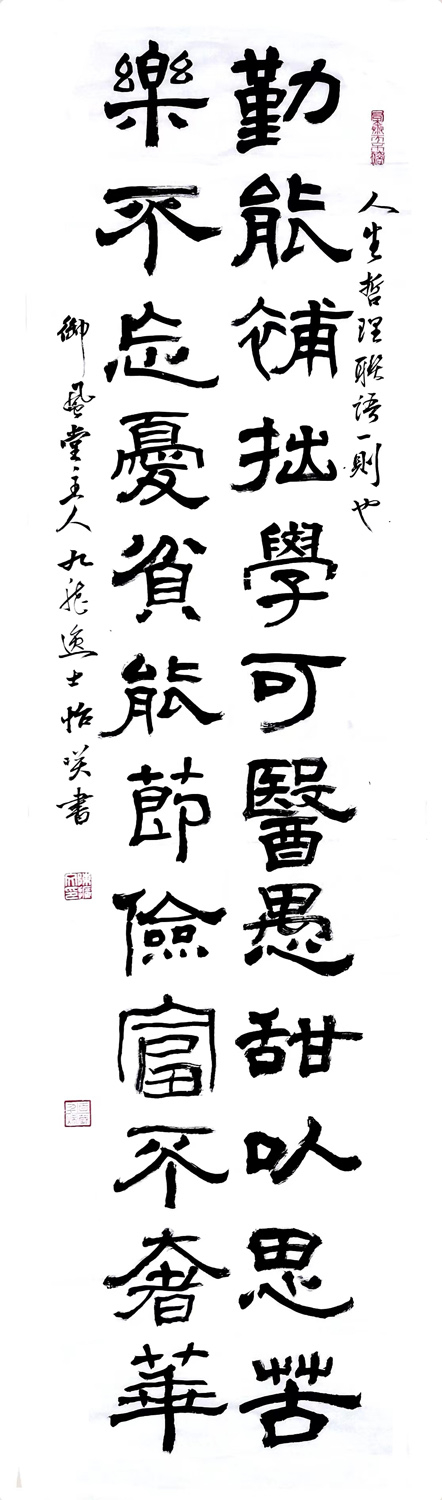 人生哲理联语一则也
勤能補拙學可醫愚甜以思苦
樂不忘憂貧能節儉富不奢華
御風堂主人九龍逸士怡笑書